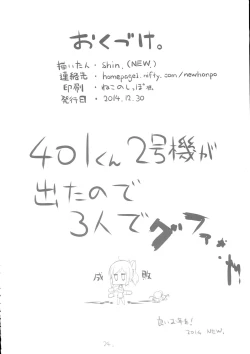 おくづけ。
描いたん・Shin.(NEW.)
連絡先・homepage2.nifty.com/newhanpo
印刷・ねこのしっぽさん
発行日・2014.12.30
401くん2号機が
出たので
3人で
成敗
2014 NEW.